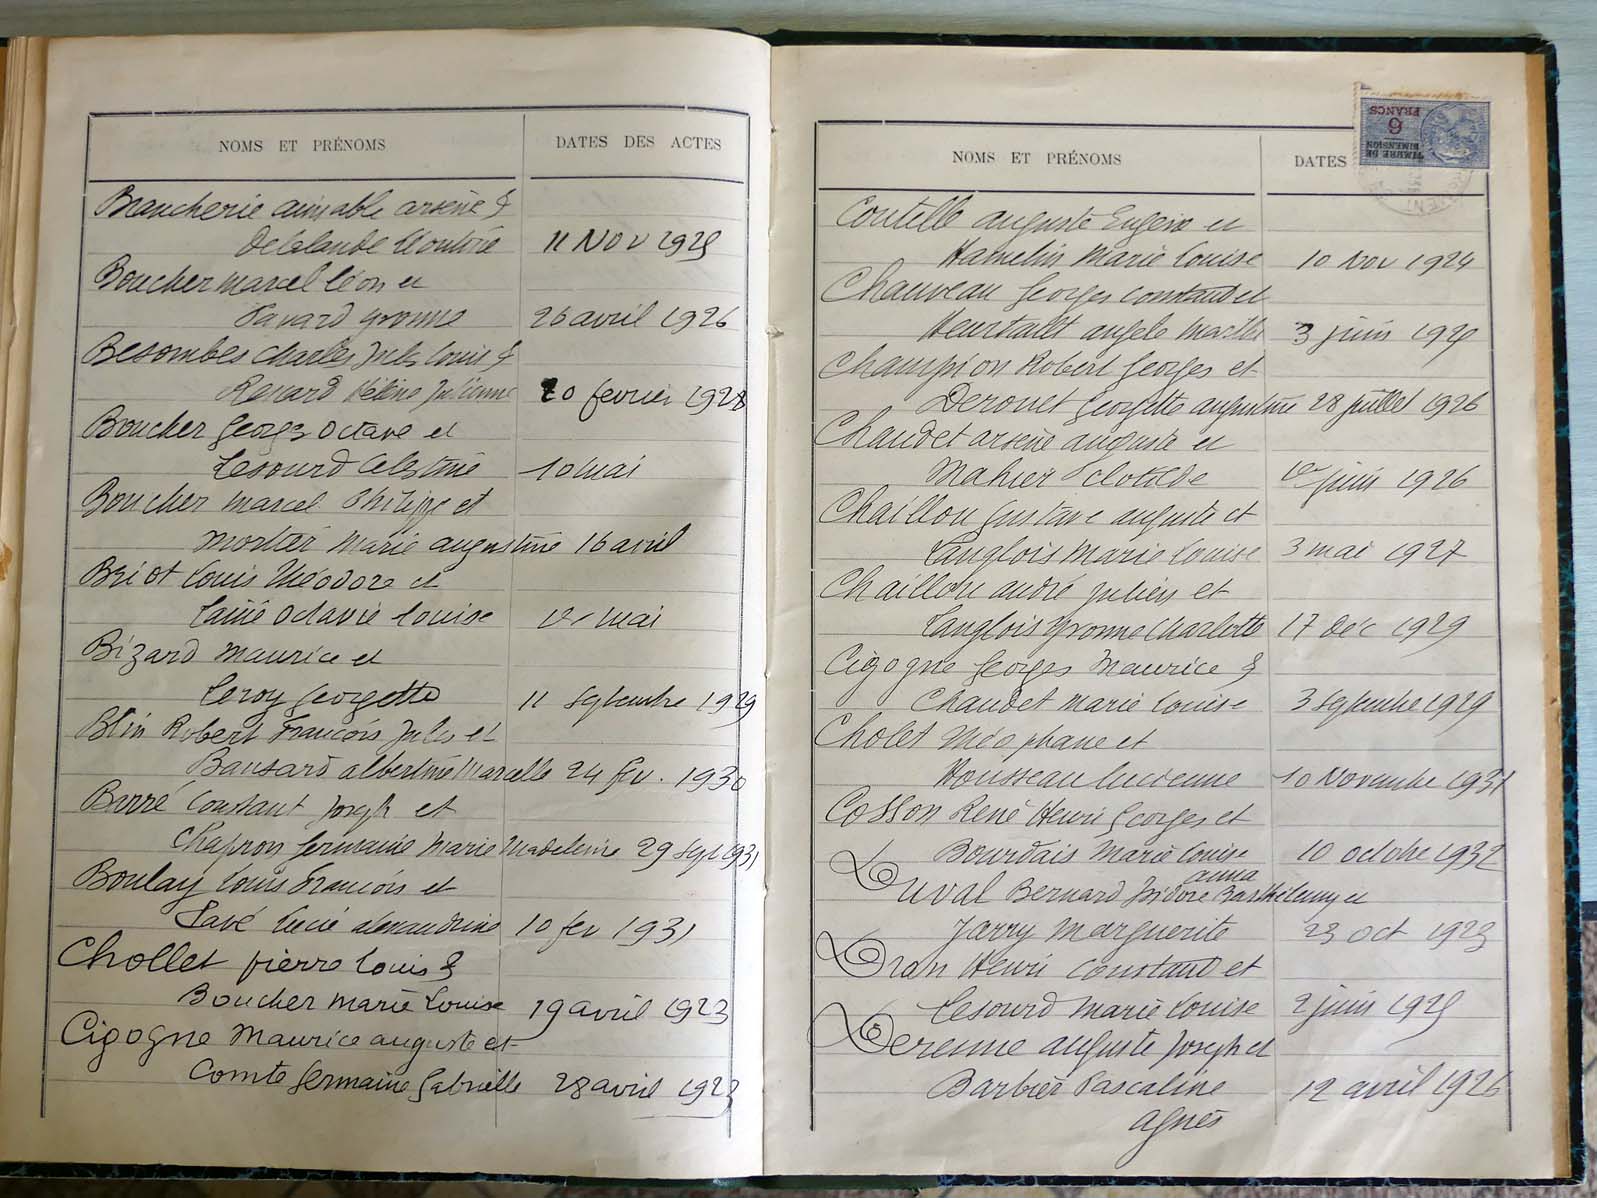 NOMS ET PRÉNOMS DATES DES ACTES
Braucherie aimable arsène &
Delalande 11 Nov 1925
Boucher marcel léon et
Favard yvonne 26 avril 1926
Besombes Charles Jules Louis &
Renard Hélène Julienne 20 fevrier 1928
Boucher Georges Octave et
Lesourd Celestine 10 mai
Boucher marcel Philippe et
Mortier Marie augustine 16 avril
Briot Louis Théodore et
Lainé Octavie Louise mai
Bizard Maurice et
Leroy Georgette 11 Septembre 1929
Blin Robert François Jules et
Bansard albertine Marcelle 24 fev. 1930
Barré Constant Joseph et
Chapron Germaine Marie Madeleine 29 Sept 1931
Boulay Louis François et
Lucie alexandrine 10 fev 1931
Chollet pierre Louis &
Boucher Marie Louise 19 avril 1923
Cigogne Maurice auguste et
Comte Germaine Gabrielle 28 avril 1923
NOMS ET PRÉNOMS DATES
TIMBRE DE
DIMENSION
6
FRANCS
Coutelle auguste Eugène et
Hamelin Marie Louise 10 Nov 1924
Chauveau Georges Constant et
Heurtault angele Marthe 3 juin 1929
Champion Robert Georges et
Derouet Georgette augustine 28 juillet 1926
Chaudet arsène auguste et
Mahier Clotilde 1er juin 1926
Chaillou Gustave auguste et
Langlois Marie Louise 3 mai 1927
Chaillou andré Julien et
Langlois Yvonne Charlotte 17 Déc 1929
Cigogne Georges Maurice &
Chaudet Marie Louise 3 Septembre 1929
Cholet Théophane et
Housseau Lucienne 10 Novembre 1931
Cosson René Henri Georges et
Bourdais Marie Louise 10 octobre 1932
anna
Duval Bernard Isidore Barthélemy et
Jarry Marguerite 23 oct 1923
Dran Henri Constant et
Lesourd Marie Louise 2 juin 1925
Derenne auguste Joseph et
Barbier Pascaline 12 avril 1926
agnès